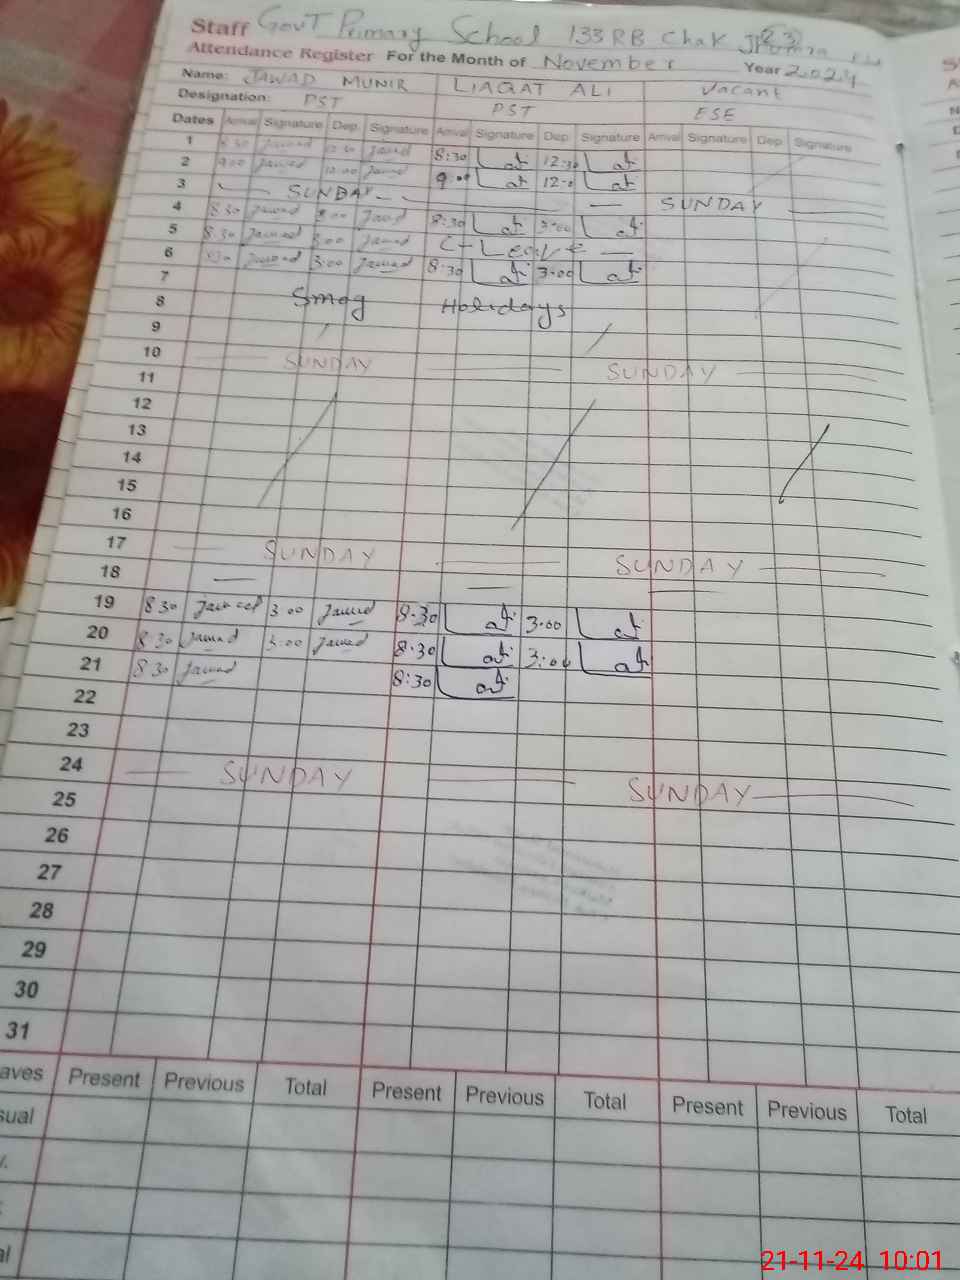 Staff Govt Primary School 133 RB Chak
Attendance Register For the Month of November Year 2024
Name: JAWAD MUNIR LIAQAT ALI Vacant
Designation: PST PST ESE
Dates Arrival Signature Dep. Signature Arrival Signature Dep. Signature Arrival Signature Dep. Signature
1 8:30 Jawad 12:30 Jawad 8:30 12:30
2 9:00 Jawad 12:00 Jawad 9:00 12:0
3 SUNDAY SUNDAY
4 8:30 Jawad 3:00 Jawad 8:30 3:00
5 8:30 Jawad 3:00 Jawad C-Leave
6 8:30 Jawad 3:00 Jawad 8:30 3:00
7
8 Smog Holidays
9
10 SUNDAY SUNDAY
11
12
13
14
15
16
17 SUNDAY SUNDAY
18
19 8:30 Jawad 3:00 Jawad 8:30 3:00
20 8:30 Jawad 3:00 Jawad 8:30 3:00
21 8:30 Jawad 8:30
22
23
24 SUNDAY SUNDAY
25
26
27
28
29
30
31
aves Present Previous Total Present Previous Total Present Previous Total
sual
21-11-24 10:01